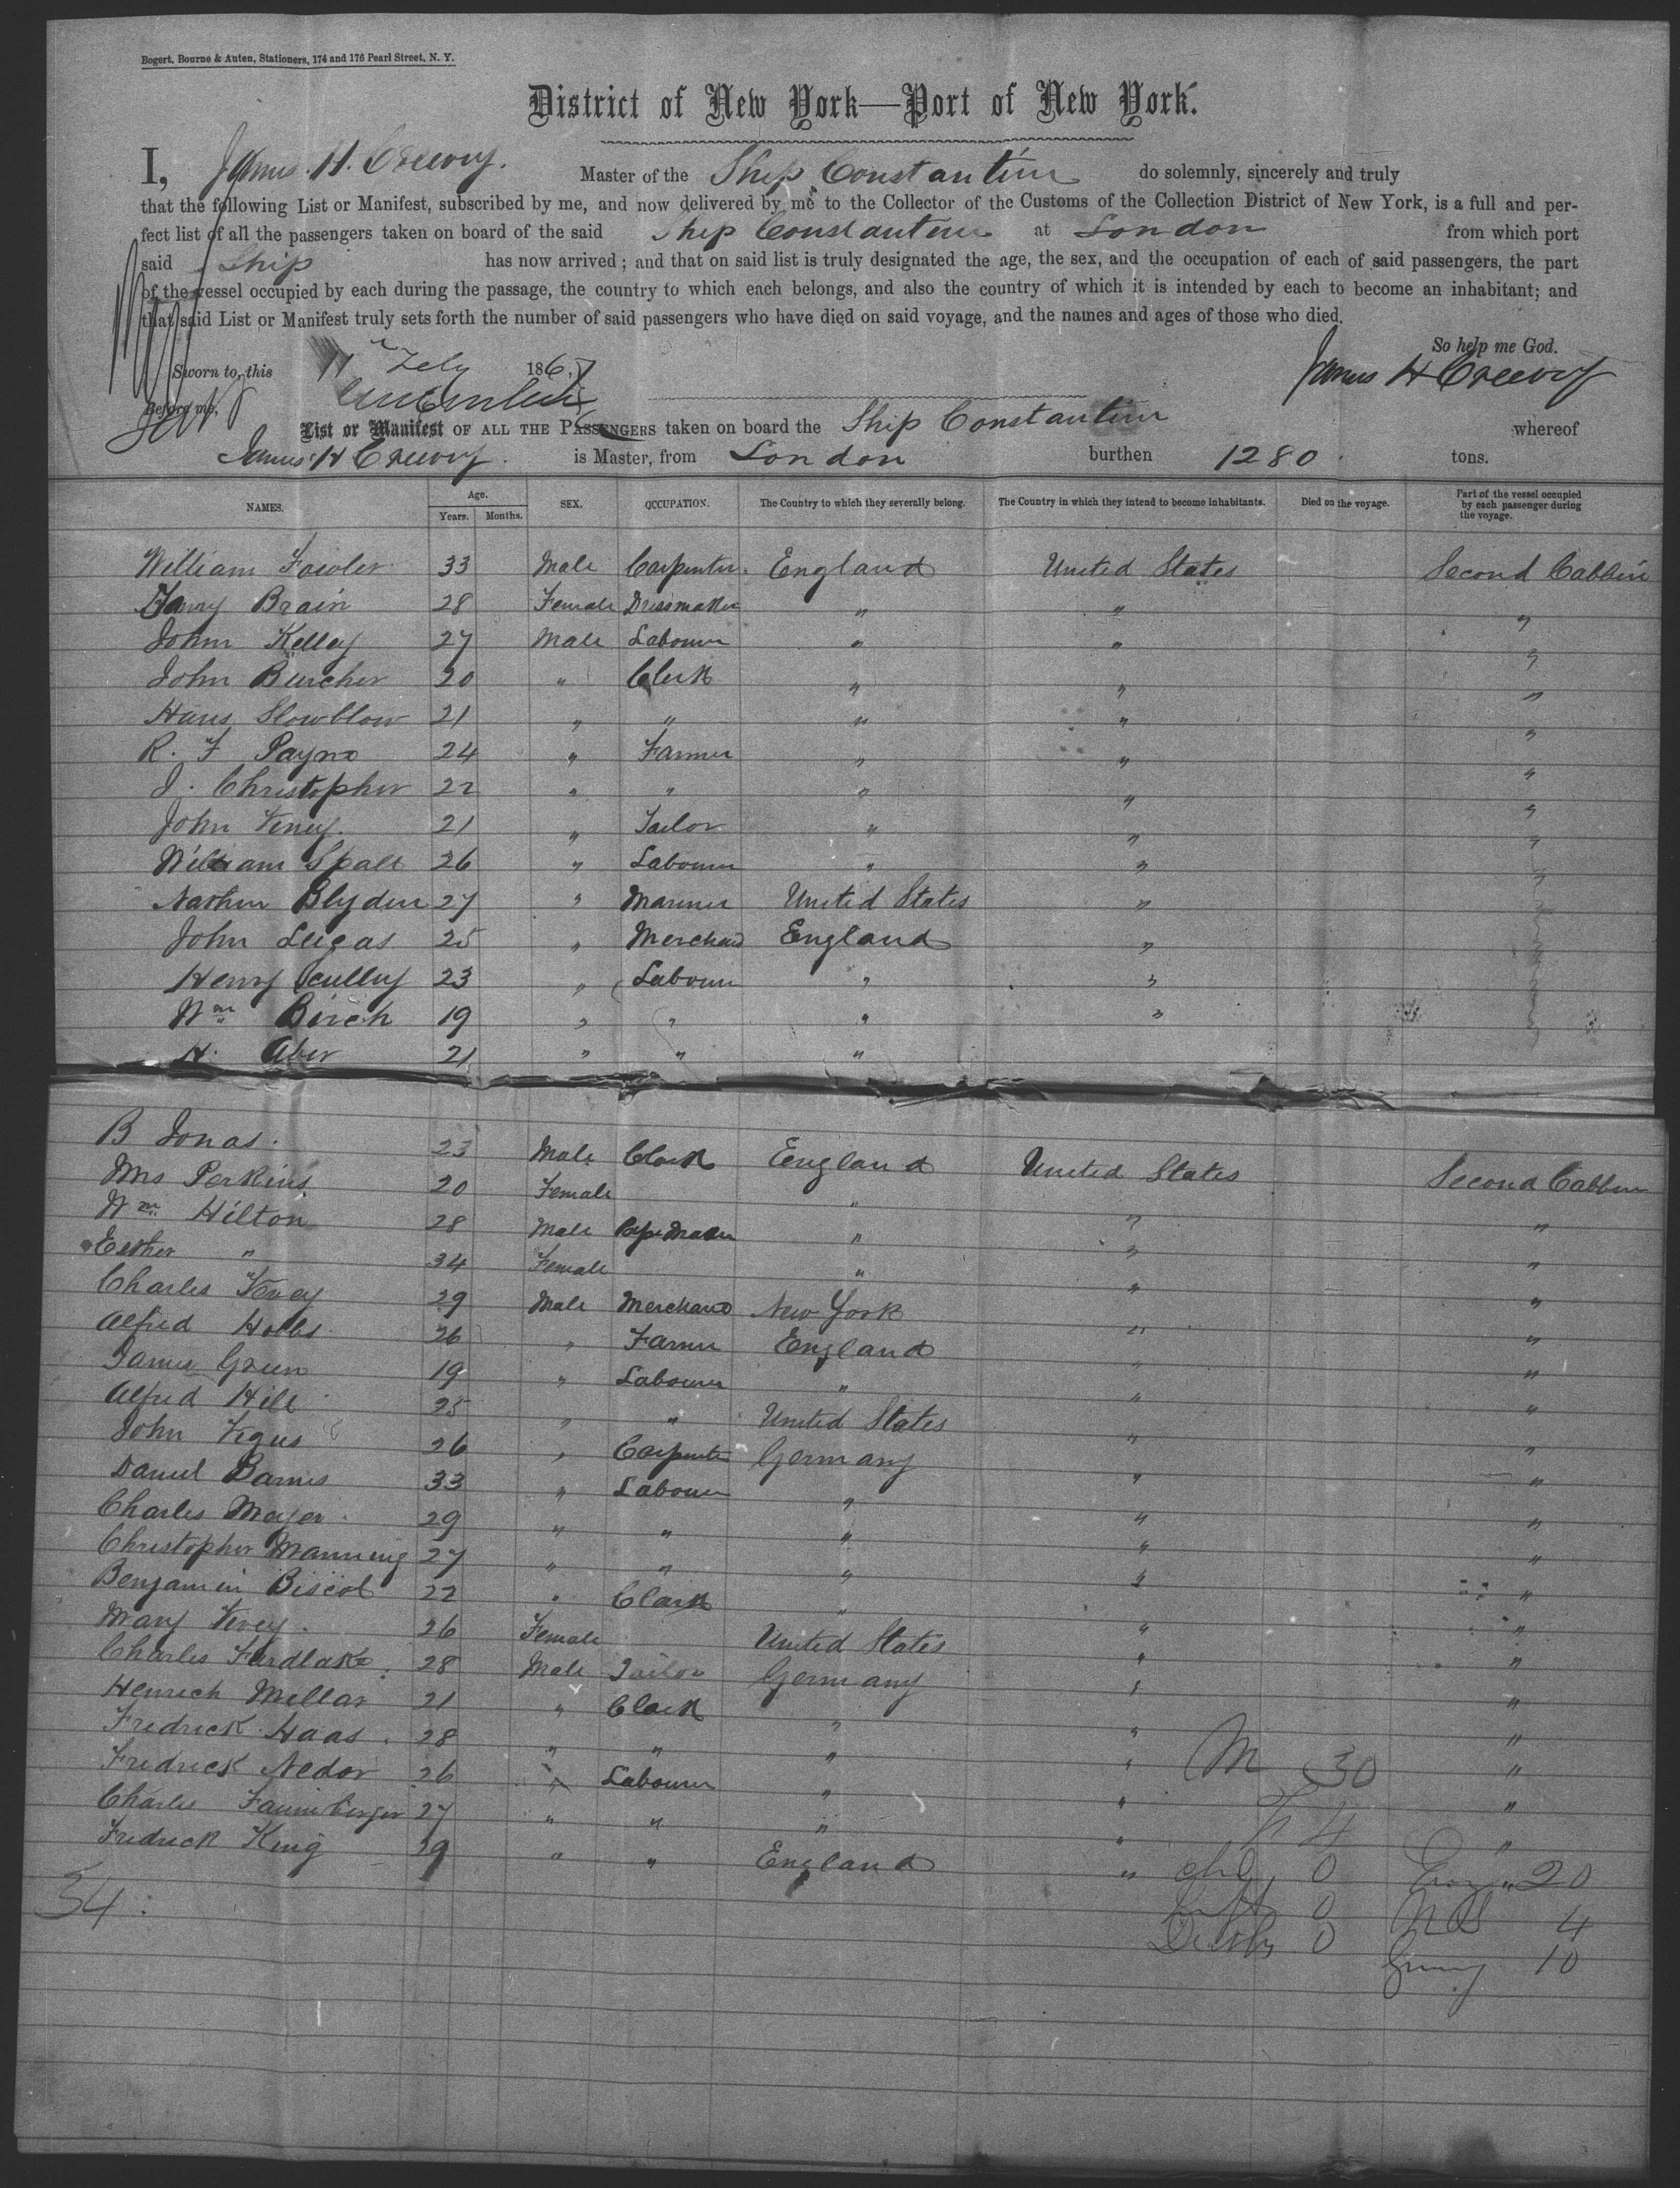 Bogert, Bourne & Auten, Stationers, 174 and 176 Pearl Street, N. Y.
District of New York—Port of New York.
I, James. H. Creevey. Master of the Ship Constantine do solemnly, sincerely and truly
that the following List or Manifest, subscribed by me, and now delivered by me to the Collector of the Customs of the Collection District of New York, is a full and per-
fect list of all the passengers taken on board of the said Ship Constantine at London from which port
said Ship has now arrived; and that on said list is truly designated the age, the sex, and the occupation of each of said passengers, the part
of the vessel occupied by each during the passage, the country to which each belongs, and also the country of which it is intended by each to become an inhabitant; and
that said List or Manifest truly sets forth the number of said passengers who have died on said voyage, and the names and ages of those who died.
So help me God.
Sworn to, this 11 Feby 1867 James H Creevey
Before me,
List or Manifest OF ALL THE PASSENGERS taken on board the Ship Constantine whereof
James H Creevey. is Master, from London burthen 1280. tons.
NAMES. Age. Years. Months. SEX. OCCUPATION. The Country to which they severally belong. The Country in which they intend to become inhabitants. Died on the voyage. Part of the vessel occupied by each passenger during the voyage.
William Fowler 33 Male Carpenter. England United States Second Cabbin
Fanny Brain 28 Female Dressmaker " " "
John Kelley 27 Male Labourer " " "
John Burcher 20 " Clerk " " "
Hans Slowblow 21 " " " " "
R. F Payne 24 " Farmer " " "
J. Christopher 22 " " " " "
John Veney. 21 " Tailor " " "
William Spall 26 " Labourer " " "
Nathen Blyden 27 " Mariner United States " "
John Lugas 25 " Merchand England " "
Henry Scully 23 " Labourer " " "
Wm Birch 19 " " " " "
H. Aber 21 " " "
B Jonas. 23 Male Clerk England United States Second Cabbin
Mrs Perkins 20 Female " " "
Wm Hilton 28 Male " " "
Esther " 34 Female " " "
Charles Vevey 29 Male Merchand New York " "
Alfred Hobbs. 26 " Farmer England " "
James Green 19 " Labourer " " "
Alfred Hill 25 " " United States " "
John Vegus 26 " Carpenter Germany " "
Daniel Barnes 33 " Labourer " " "
Charles Meyer. 29 " " " " "
Christopher Manning 27 " " " " "
Benjamin Biscol 22 " Clerk " " "
Mary Vevey. 26 Female United States " "
Charles Fardlake. 28 Male Tailor Germany " "
Henrich Mellar 21 " Clerk " " "
Fredrick Haas. 28 " " " " "
Fredrick Nedor 26 " Labourer " " "
Charles Faunberger 27 " " " " "
Fredrick King 29 " " England "
M 30
F 4
chd 0 Eng " 20
Inft 0 U S 4
Deaths 0 Germy 10
34.